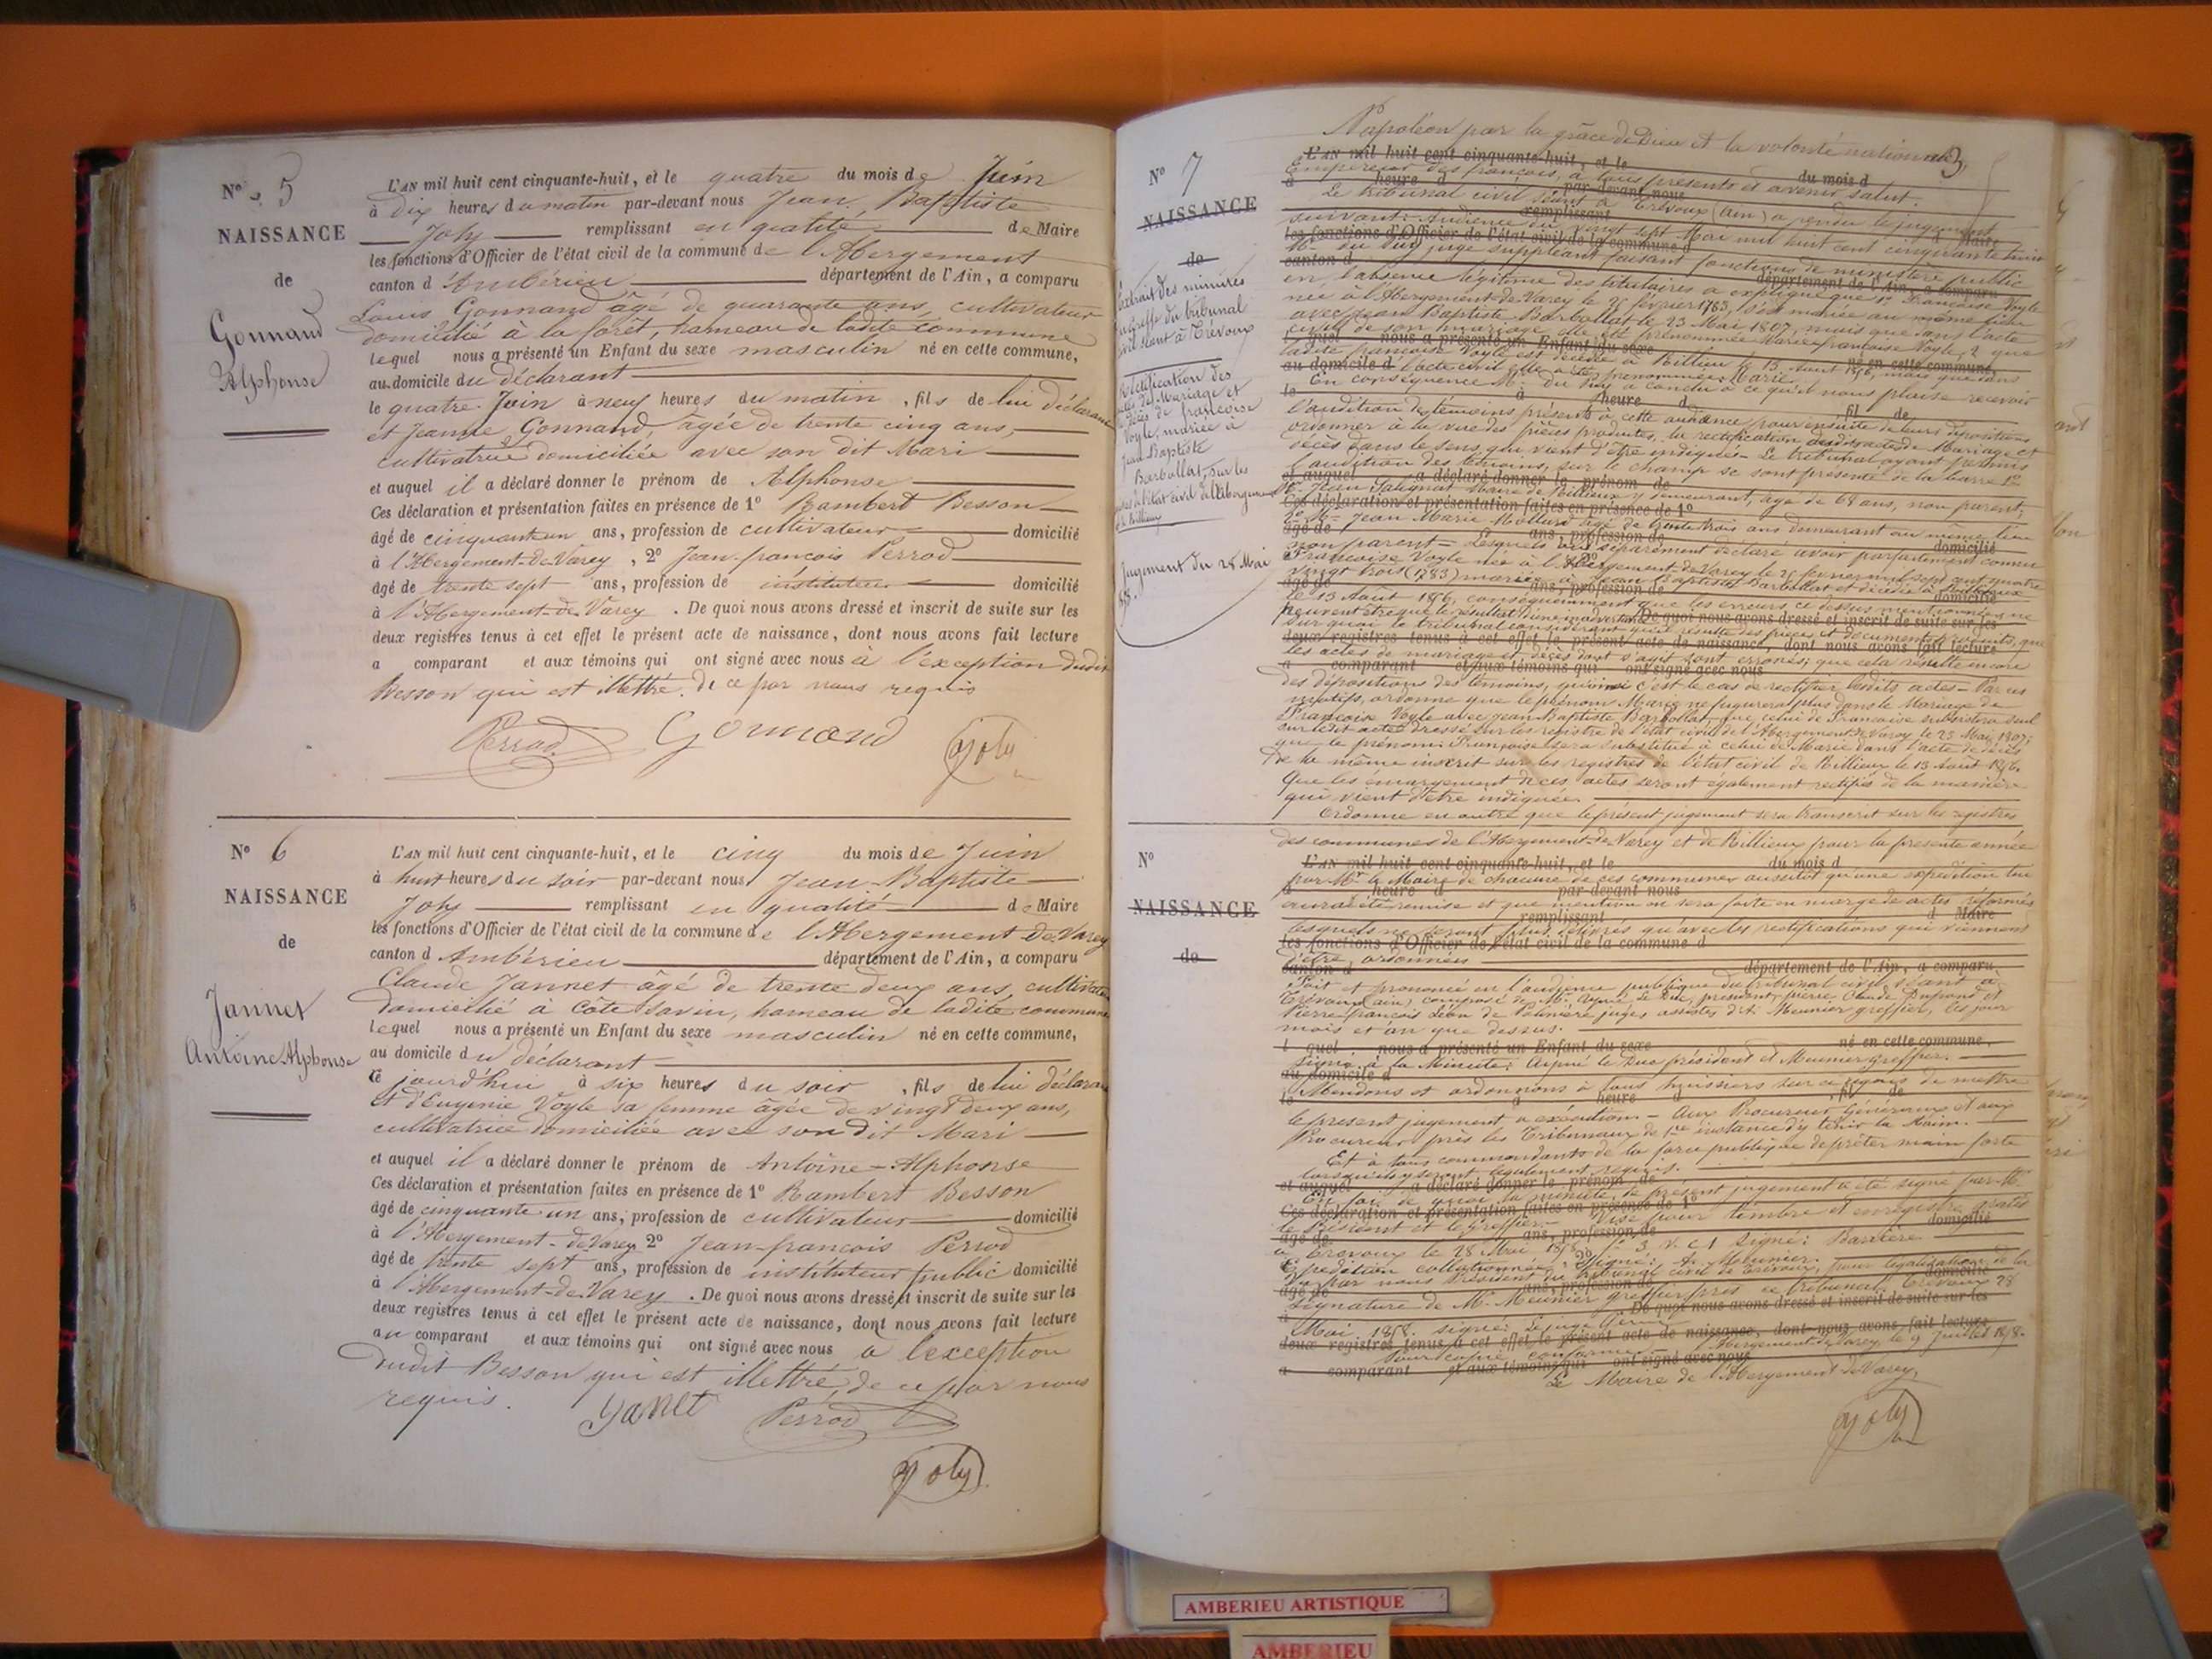 N° 5
NAISSANCE
de
Gonnand
Alphonse
L'AN mil huit cent cinquante-huit, et le quatre du mois de Juin
à dix heures du matin par-devant nous Jean Baptiste
Joly remplissant en qualité de Maire
les fonctions d'Officier de l'état civil de la commune de l'Abergement
canton d'Ambérieu département de l'Ain, a comparu
Louis Gonnand âgé de quarante ans, cultivateur
domicilié à la forêt, hameau de ladite commune
lequel nous a présenté un Enfant du sexe masculin né en cette commune,
au domicile du déclarant
le quatre Juin à neuf heures du matin, fils de lui déclarant
et Jeanne Gonnand, âgée de trente cinq ans,
cultivatrice domiciliée avec son dit Mari
et auquel il a déclaré donner le prénom de Alphonse
Ces déclaration et présentation faites en présence de 1° Rambert Besson
âgé de cinquante un ans, profession de cultivateur domicilié
à l'Abergement-de-Varey, 2° Jean-françois Perrod
âgé de trente sept ans, profession de instituteur domicilié
à l'Abergement-de-Varey. De quoi nous avons dressé et inscrit de suite sur les
deux registres tenus à cet effet le présent acte de naissance, dont nous avons fait lecture
a comparant et aux témoins qui ont signé avec nous à l'exception dudit
Besson qui est illettré. de ce par nous requis
Perrod Gonnand Joly
N° 6
NAISSANCE
de
Jannet
Antoine Alphonse
L'AN mil huit cent cinquante-huit, et le cinq du mois de Juin
à huit heures du soir par-devant nous Jean-Baptiste
Joly remplissant en qualité de Maire
les fonctions d'Officier de l'état civil de la commune de l'Abergement-de-Varey
canton d'Ambérieu département de l'Ain, a comparu
Claude Jannet âgé de trente deux ans, cultivateur
domicilié à Côte Savin, hameau de ladite commune
lequel nous a présenté un Enfant du sexe masculin né en cette commune,
au domicile du déclarant
ce jourd'hui à six heures du soir, fils de lui déclarant
et d'Eugenie Voyle sa femme âgée de vingt deux ans,
cultivatrice domiciliée avec son dit Mari
et auquel il a déclaré donner le prénom de Antoine-Alphonse
Ces déclaration et présentation faites en présence de 1° Rambert Besson
âgé de cinquante un ans, profession de cultivateur domicilié
à l'Abergement-de-Varey 2° Jean-françois Perrod
âgé de trente sept ans, profession de instituteur public domicilié
à l'Abergement-de-Varey. De quoi nous avons dressé et inscrit de suite sur les
deux registres tenus à cet effet le présent acte de naissance, dont nous avons fait lecture
au comparant et aux témoins qui ont signé avec nous à l'exception
dudit Besson qui est illettré, de ce par nous
requis.
Janet Perrod
Joly
3
N° 7
NAISSANCE
de
Extrait des minutes
du greffe du tribunal
civil séant à Trévoux
Rectification des
actes de Mariage et
de décès de françoise
Voyle, mariée à
Jean Baptiste
Barbollat, sur les
actes de l'état civil de l'Abergement
et de Rillieux
Jugement du 28 Mai
Napoléon par la grâce de Dieu et la volonté nationale,
L'AN mil huit cent cinquante-huit, et le du mois d
Empereur des françois, à tous présents et à venir salut.
Le tribunal civil séant à Trévoux (ain) a rendu le jugement
suivant: Audience du vingt sept Mai mil huit cent cinquante huit
Mr. du Puy juge suppléant faisant fonctions de ministère public
en l'absence légitime des titulaires a expliqué que 1° françoise Voyle
née à l'Abergement-de-Varey le février 1783, s'est mariée au même lieu
avec Jean Baptiste Barbollat le 23 Mai 1807, mais que dans l'acte
civil de son mariage elle a été prénommée Marie françoise Voyle; 2° que
ladite françoise Voyle est décédée à Rillieux le 13 Août 1856, mais que dans
l'acte civil elle a été prénommée Marie.
En conséquence Mr. du Puy a conclu à ce qu'il nous plaise recevoir
l'audition de témoins présents à cette audience pour ensuite de leurs dépositions
ordonner à la vue des pièces produites, la rectification desdits actes de Mariage et
décès dans le sens qui vient d'être indiqué. Le tribunal ayant permis
l'audition des témoins, sur le champ se sont présentés de la barre 1°
Mr. Jean Maire de Rillieux y demeurant, âgé de 68 ans, non parent;
2° Mr. Jean Marie âgé de trente trois ans demeurant au même lieu
non parent - Lesquels ont séparément déclaré avoir parfaitement connu
Françoise Voyle née à l'Abergement de Varey le février mil sept cent quatre
vingt trois (1783) mariée à Jean Baptiste Barbollat et décédée à Rillieux
le 13 Août 1856, conséquemment que les erreurs ci dessus mentionnées ne
peuvent être que le résultat d'une inadvertance
Sur quoi le tribunal considérant qu'il résulte des pièces et documents produits, que
les actes de mariage et décès dont s'agit sont erronés; que cela résulte encore
des dépositions des témoins, qu'ainsi c'est le cas de rectifier lesdits actes - Par ces
motifs, ordonne que le prénom Marie ne figurera plus dans le Mariage de
Françoise Voyle avec Jean Baptiste Barbollat, que celui de Françoise subsistera seul
sur ledit acte dressé sur les registres de l'état civil de l'Abergement de Varey le 23 Mai 1807;
que le prénom Françoise sera substitué à celui de Marie dans l'acte de décès
de la même inscrit sur les registres de l'état civil de Rillieux le 13 Août 1856.
Que les émargement de ces actes seront également rectifiés de la manière
qui vient d'être indiquée.
Ordonne en outre que le présent jugement sera transcrit sur les registres
N°
NAISSANCE
de
des communes de l'Abergement-de-Varey et de Rillieux pour la présente année
par Mr. le Maire de chacune de ces communes aussitôt qu'une expédition lui
aura été remise et que mention en sera faite en marge de actes réformés
lesquels ne seront plus délivrés qu'avec les rectifications qui viennent
d'être ordonnées
Fait et prononcé en l'audience publique du tribunal civil séant à
Trévoux (ain) composé de Mr. Aymé le Duc, président, pierre Claude Dupond et
Pierre-françois Léon de juges, assistés d'A. Meunier greffier, les jour
mois et an que dessus.
Signé à la Minute: Aymé le Duc président et Meunier greffier.
Mandons et ordonnons à tous huissiers sur ce requis de mettre
le présent jugement à exécution - Aux Procureurs Généraux et aux
Procureurs près les Tribunaux de 1re instance d'y tenir la Main.
Et à tous commandants de la force publique de prêter main forte
lorsqu'ils y seront légalement requis.
En foi de quoi la minute de présent jugement a été signé par M.
le Président et le Greffier. Visé pour timbre et enregistré gratis
à Trévoux le 28 Mai 1858 Signé: Barrère
Expédition collationnée, Signé: A. Meunier.
Vu par nous Président du tribunal civil de Trévoux, pour légalisation de la
signature de Mr. Meunier greffier près ce tribunal. Trévoux 28
Mai 1858.
Pour copie conforme Abergement-de-Varey, le 9 Juillet 1858.
Le Maire de l'Abergement de Varey,
Joly
AMBERIEU ARTISTIQUE
AMBERIEU